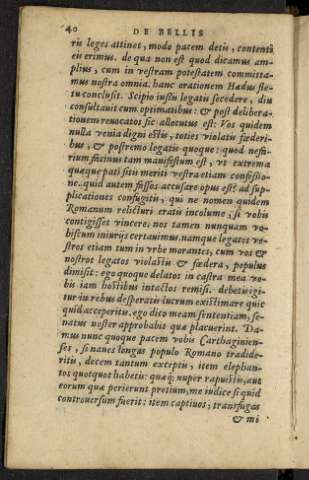 40 DE BELLIS
ris leges attinet, modo pacem detis, contenti
eis erimus. de qua non est quod dicamus am-
plius, cum in vestram potestatem committa-
mus nostra omnia. hanc orationem Hadus fle-
tu conclusit. Scipio iussis legatis secedere, diu
consultavit cum optimatibus: & post delibera-
tionem revocatos sic allocutus est: Vos quidem
nulla venia digni estis, toties violatis fœderi-
bus, & postremo legatis quoque: quod nefa-
rium facinus tam manifestum est, vt extrema
quæque pati sitis meriti vestra etiam confessio-
ne. quid autem fassos accusare opus est? ad sup-
plicationes confugitis, qui ne nomen quidem
Romanum relicturi eratis incolume, si vobis
contigisset vincere. nos tamen nunquam vo-
biscum iniurijs certavimus. namque legatos ve-
stros etiam tum in vrbe morantes, cum vos &
nostros legatos violastis & fœdera, populus
dimisit: ego quoque delatos in castra mea vo-
bis iam hostibus intactos remisi. debetis igi-
tur in rebus desperatis lucrum existimare quic
quid acceperitis. ego dito meam sententiam, se-
natus noster approbabit quæ placuerint. Da-
mus nunc quoque pacem vobis Carthaginien-
ses, si naues longas populo Romano tradide-
ritis, decem tantum exceptis, item elephan-
tos quotquot habetis: quæq; nuper rapuistis, aut
eorum quæ perierunt pretium, me iudice si quid
controuersum fuerit: item captiuos, transfugas
& mi